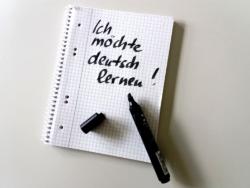 Ich
möchte
deutsch
lernen !